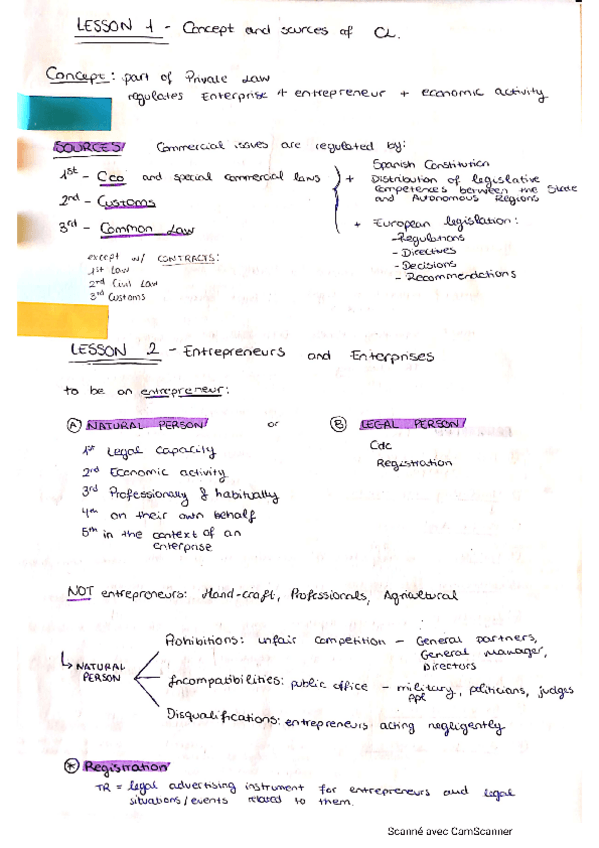 LESSON 1 - Concept and sources of CL.
Concept: part of Private Law
regulates Enterprise + entrepreneur + economic activity
SOURCES Commercial issues are regulated by:
1st - Cco and special commercial laws
2nd - Customs
3rd - Common Law
except w/ CONTRACTS:
1st Law
2nd Civil Law
3rd Customs
+ Spanish Constitution
Distribution of legislative
competences between the State
and Autonomous Regions
+ European legislation:
- Regulations
- Directives
- Decisions
- Recommendations
LESSON 2 - Entrepreneurs and Enterprises
to be an entrepreneur:
A NATURAL PERSON or B LEGAL PERSON
1st Legal capacity
2nd Economic activity
3rd Professionally & habitually
4th on their own behalf
5th in the context of an
enterprise
Cdc
Registration
NOT entrepreneurs: Hand-craft, Professionals, Agricultural
↳ NATURAL
PERSON
Prohibitions: unfair competition - General partners,
General manager,
Directors
Incompatibilities: public office - military, politicians, judges
ppl
Disqualifications: entrepreneurs acting negligently
* Registration
TR = legal advertising instrument for entrepreneurs and legal
situations/events related to them.
Scanné avec CamScanner